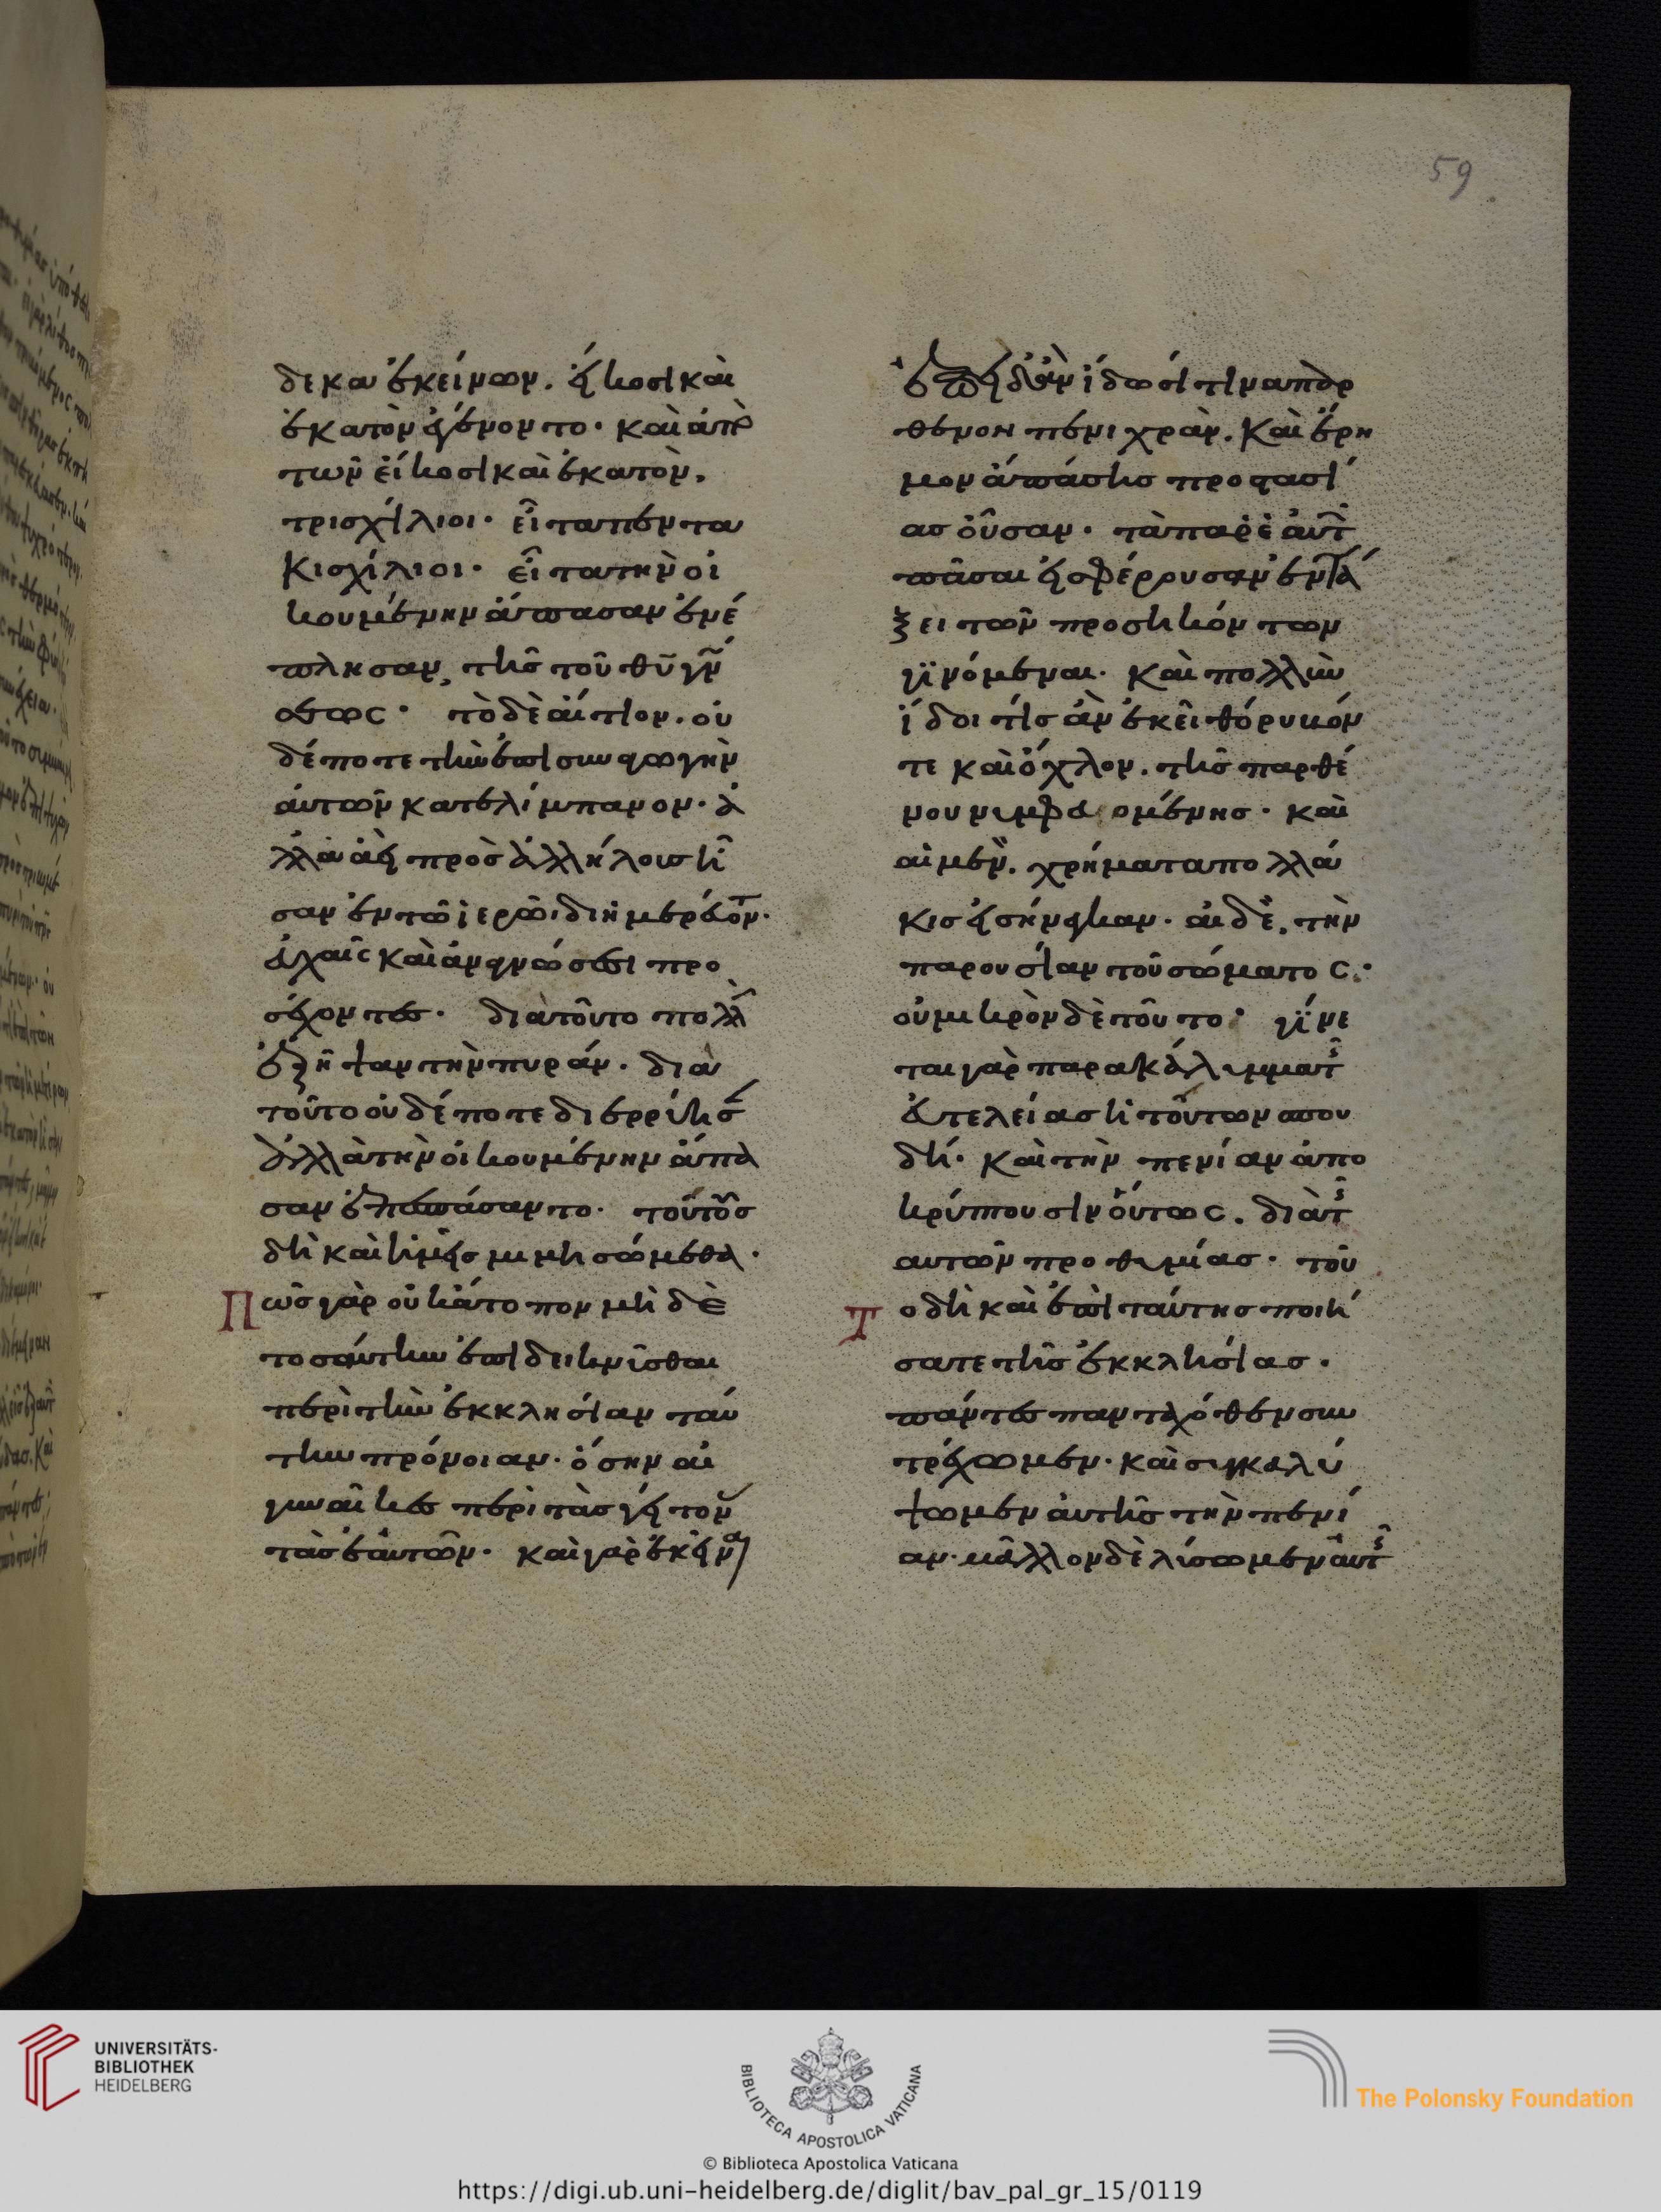 59
δεκα ἐκείνων. εἴκοσι καὶ
ἑκατὸν ἐγένοντο· καὶ ἀπὸ
τῶν εἴκοσι καὶ ἑκατὸν,
τρισχίλιοι· εἶτα πεντα
κισχίλιοι· εἶτα τὴν οἰ
κουμένην ἅπασαν ἐνέ
πλησαν, τῆς τοῦ θῦ γν
ώσεως· τὸ δὲ αἴτιον. οὐ
δέποτε τὴν ἐπισυναγωγὴν
αὐτῶν κατελίμπανον· ἀ
λλὰ ἀεὶ πρὸς ἀλλήλοις ἦ
σαν ἐν τῶ ἱερῶ διημερεύον·
εὐχαῖς καὶ ἀναγνώσεσι προ
σέχοντες· διὰ τοῦτο πολλὴν
ἐξῆψαν τὴν πυράν. διὰ
τοῦτο οὐδέποτε διερρύησ
ἀλλὰ τὴν οἰκουμένην ἅπα
σαν ἐπεσπάσαντο· τούτους
δὴ καὶ ἡμεῖς μιμησώμεθα·
Πῶς γὰρ οὐκ ἄτοπον μὴ δὲ
τοσαύτην ἐπιδείκνυσθαι
περὶ τὴν ἐκκλησίαν ταύ
την πρόνοιαν· ὅσην αἱ
γυναῖκες περὶ τὰς γείτον
τὰς ἑαυτῶν· καὶ γὰρ ἐκεῖναι
ἐπειδὰν ἴδωσί τινα παρ
θένον πενιχρὰν. καὶ ἔρη
μον ἁπάσης προστασί
ας οὖσαν· τὰ παρ' ἑαυτ
πᾶσαι εἰσφέρουσιν ἐν τά
ξει τῶν προσηκόντων
γινόμεναι· καὶ πολλὺν
ἴδοι τίς ἂν ἐκεῖ θόρυβόν
τε καὶ ὄχλον. τῆς παρθέ
νου νυμφευομένης· καὶ
αἱ μὲν. χρήματα πολλά
κις εἰσήνεγκαν· αἱ δὲ, τὴν
παρουσίαν τοῦ σώματος.·
οὐ μικρὸν δὲ τοῦτο· γίνε
ται γὰρ παρακάλυμμα τῆς
εὐτελείας ἡ τούτων σπου
δή· καὶ τὴν πενίαν ἀπο
κρύπτουσιν οὕτως. διὰ τῆς
αυτῶν προθυμίας· τοῦ
Το δὴ καὶ ἐπὶ ταύτης ποιή
σατε τῆς ἐκκλησίας.
πάντες πανταχόθεν συν
τρέχωμεν· καὶ συγκαλύ
ψωμεν αὐτῆς τὴν πενί
αν· μᾶλλον δὲ λύσωμεν αὐτῆς
UNIVERSITÄTS-
BIBLIOTHEK
HEIDELBERG
BIBLIOTECA APOSTOLICA VATICANA
The Polonsky Foundation
© Biblioteca Apostolica Vaticana
https://digi.ub.uni-heidelberg.de/diglit/bav_pal_gr_15/0119